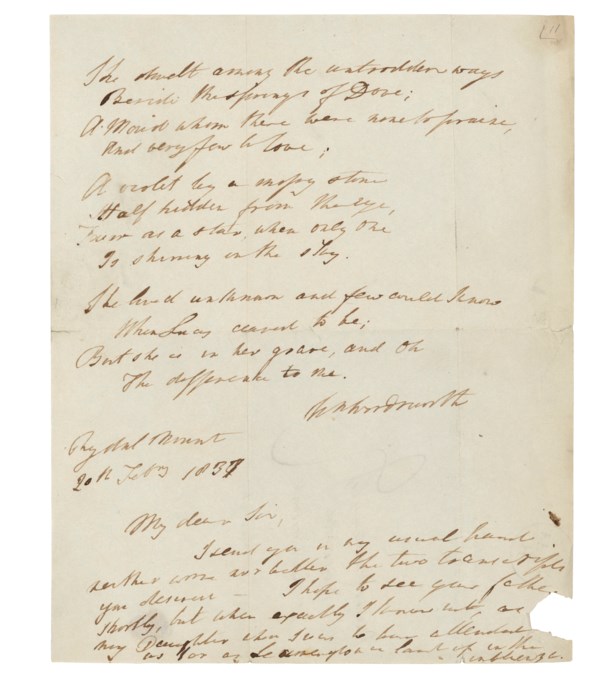 She dwelt among the untrodden ways
Beside the springs of Dove;
A Maid whom there were none to praise,
And very few to love;
A violet by a mossy stone
Half hidden from the eye,
Fair as a star, when only one
Is shining in the sky.
She lived unknown and few could know
When Lucy ceased to be;
But she is in her grave, and oh
The difference to me.
Wm Wordsworth
Rydal Mount
20th Febry 1837
My dear Sir,
I send you in my usual hand
neither worse nor better the two transcripts
you desired — I hope to see your father
shortly, but when exactly I know not, as
my Daughter who was to
as far as Leamington in